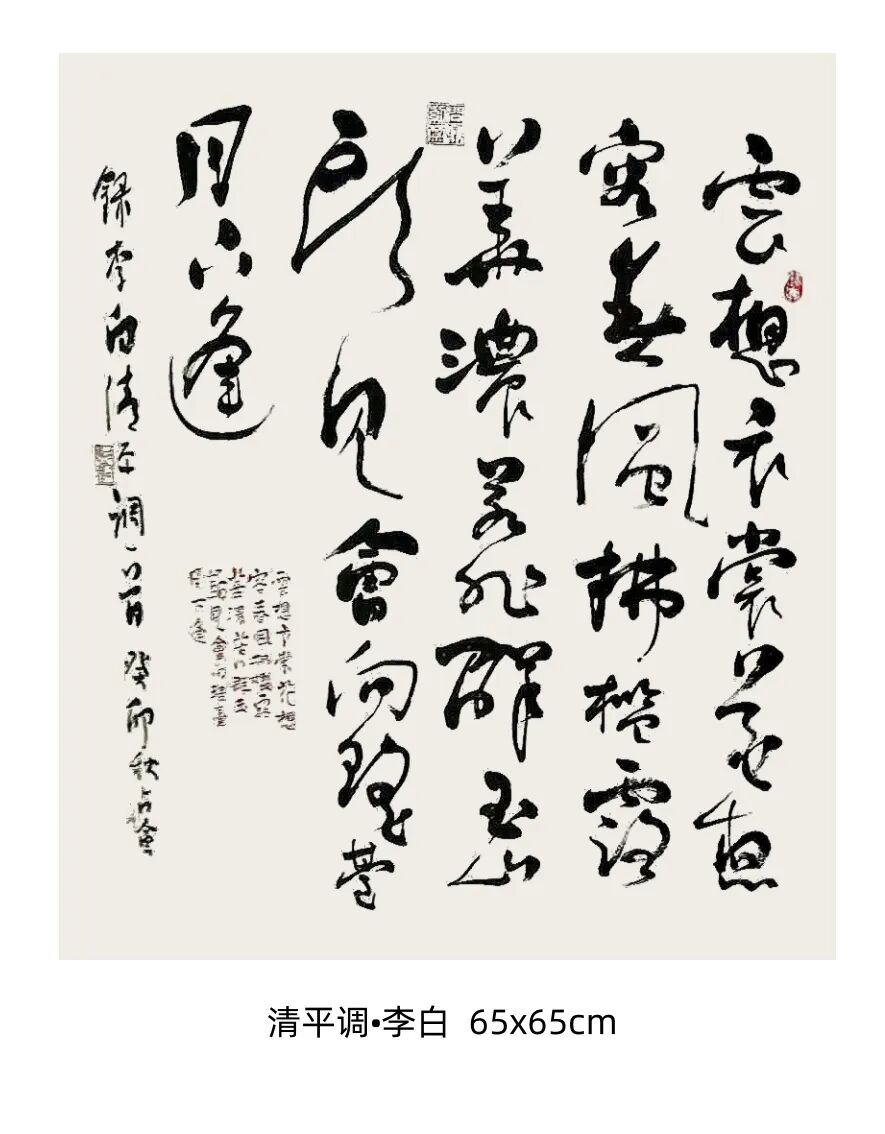 雲想衣裳花想
容春風拂檻露
華濃若非群玉山
頭見會向瑶臺
月下逢
雲想衣裳花想
容春風拂檻露
華濃若非群玉
山頭見會向瑶臺
月下逢
錄李白清平調一首 癸卯秋
清平调•李白 65x65cm